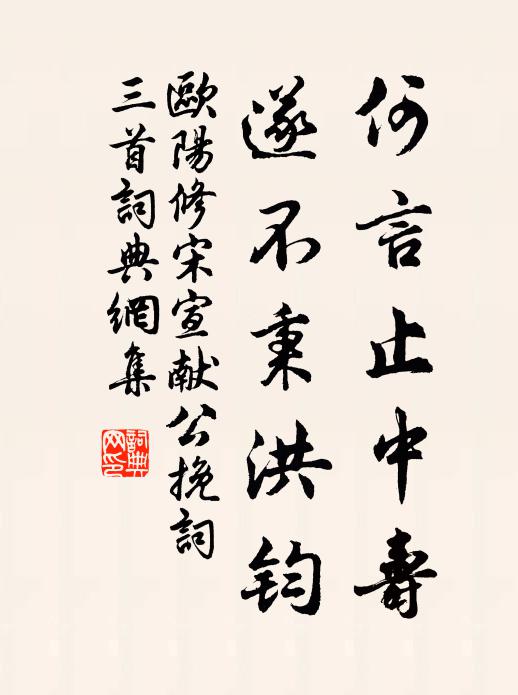 何言止中壽
遂不秉洪鈞
歐陽修宋宣献公挽詞
三首詞典網集
詞典網印